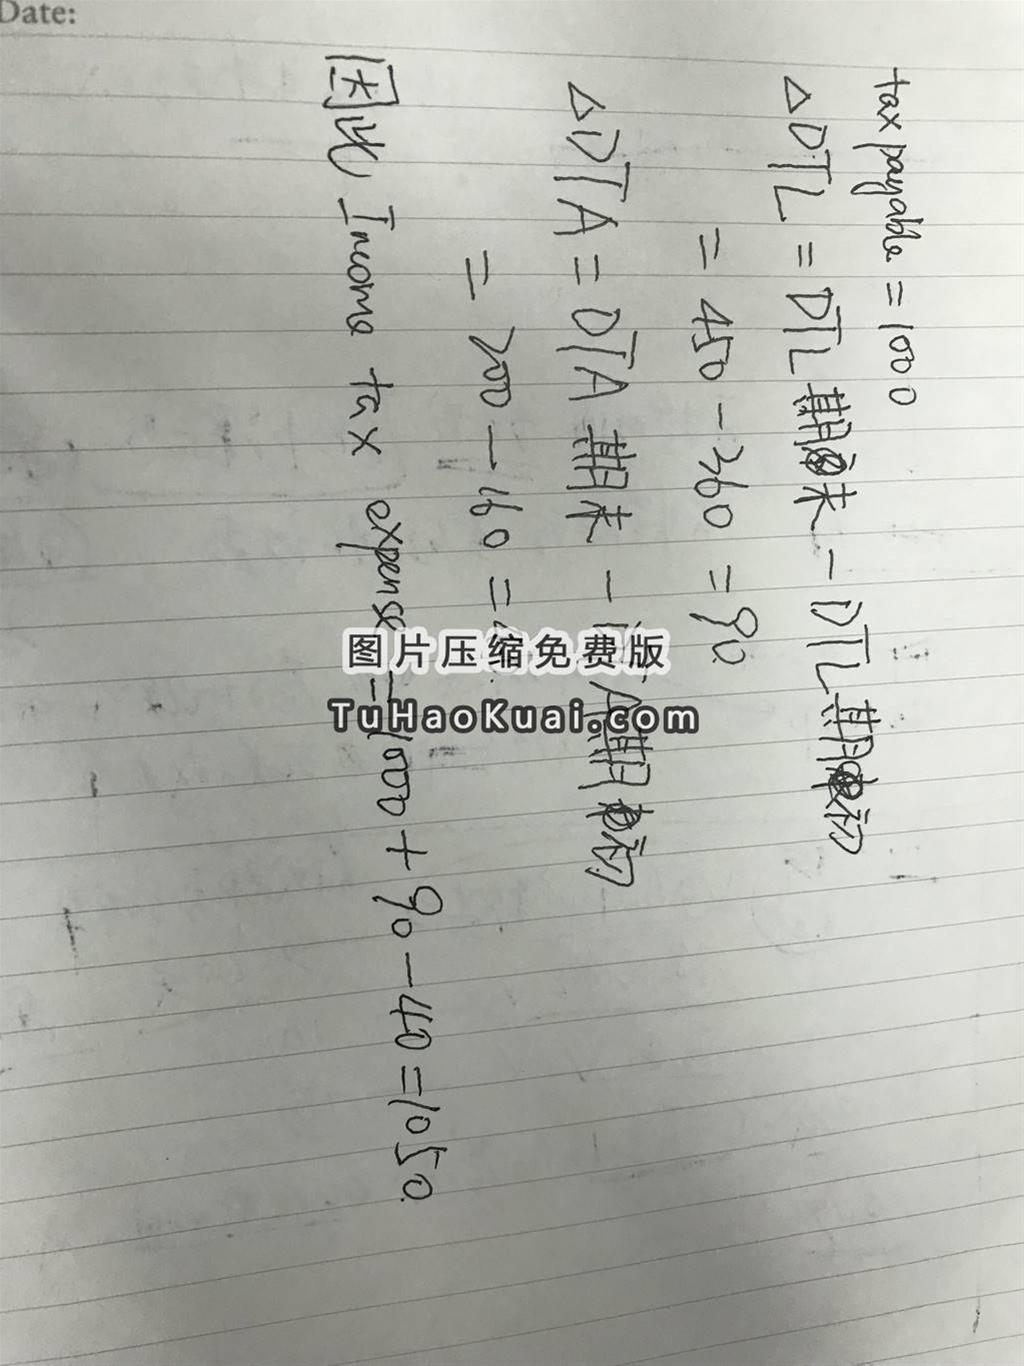 Date:
tax payable = 1000
△DTL = DTL期末 - DTL期初
= 450 - 360 = 90
△DTA = DTA期末 - DTA期初
= 200 - 160 =
因此 Income tax expense = 1000 + 90 - 40 = 1050
图片压缩免费版
TuHaoKuai.com